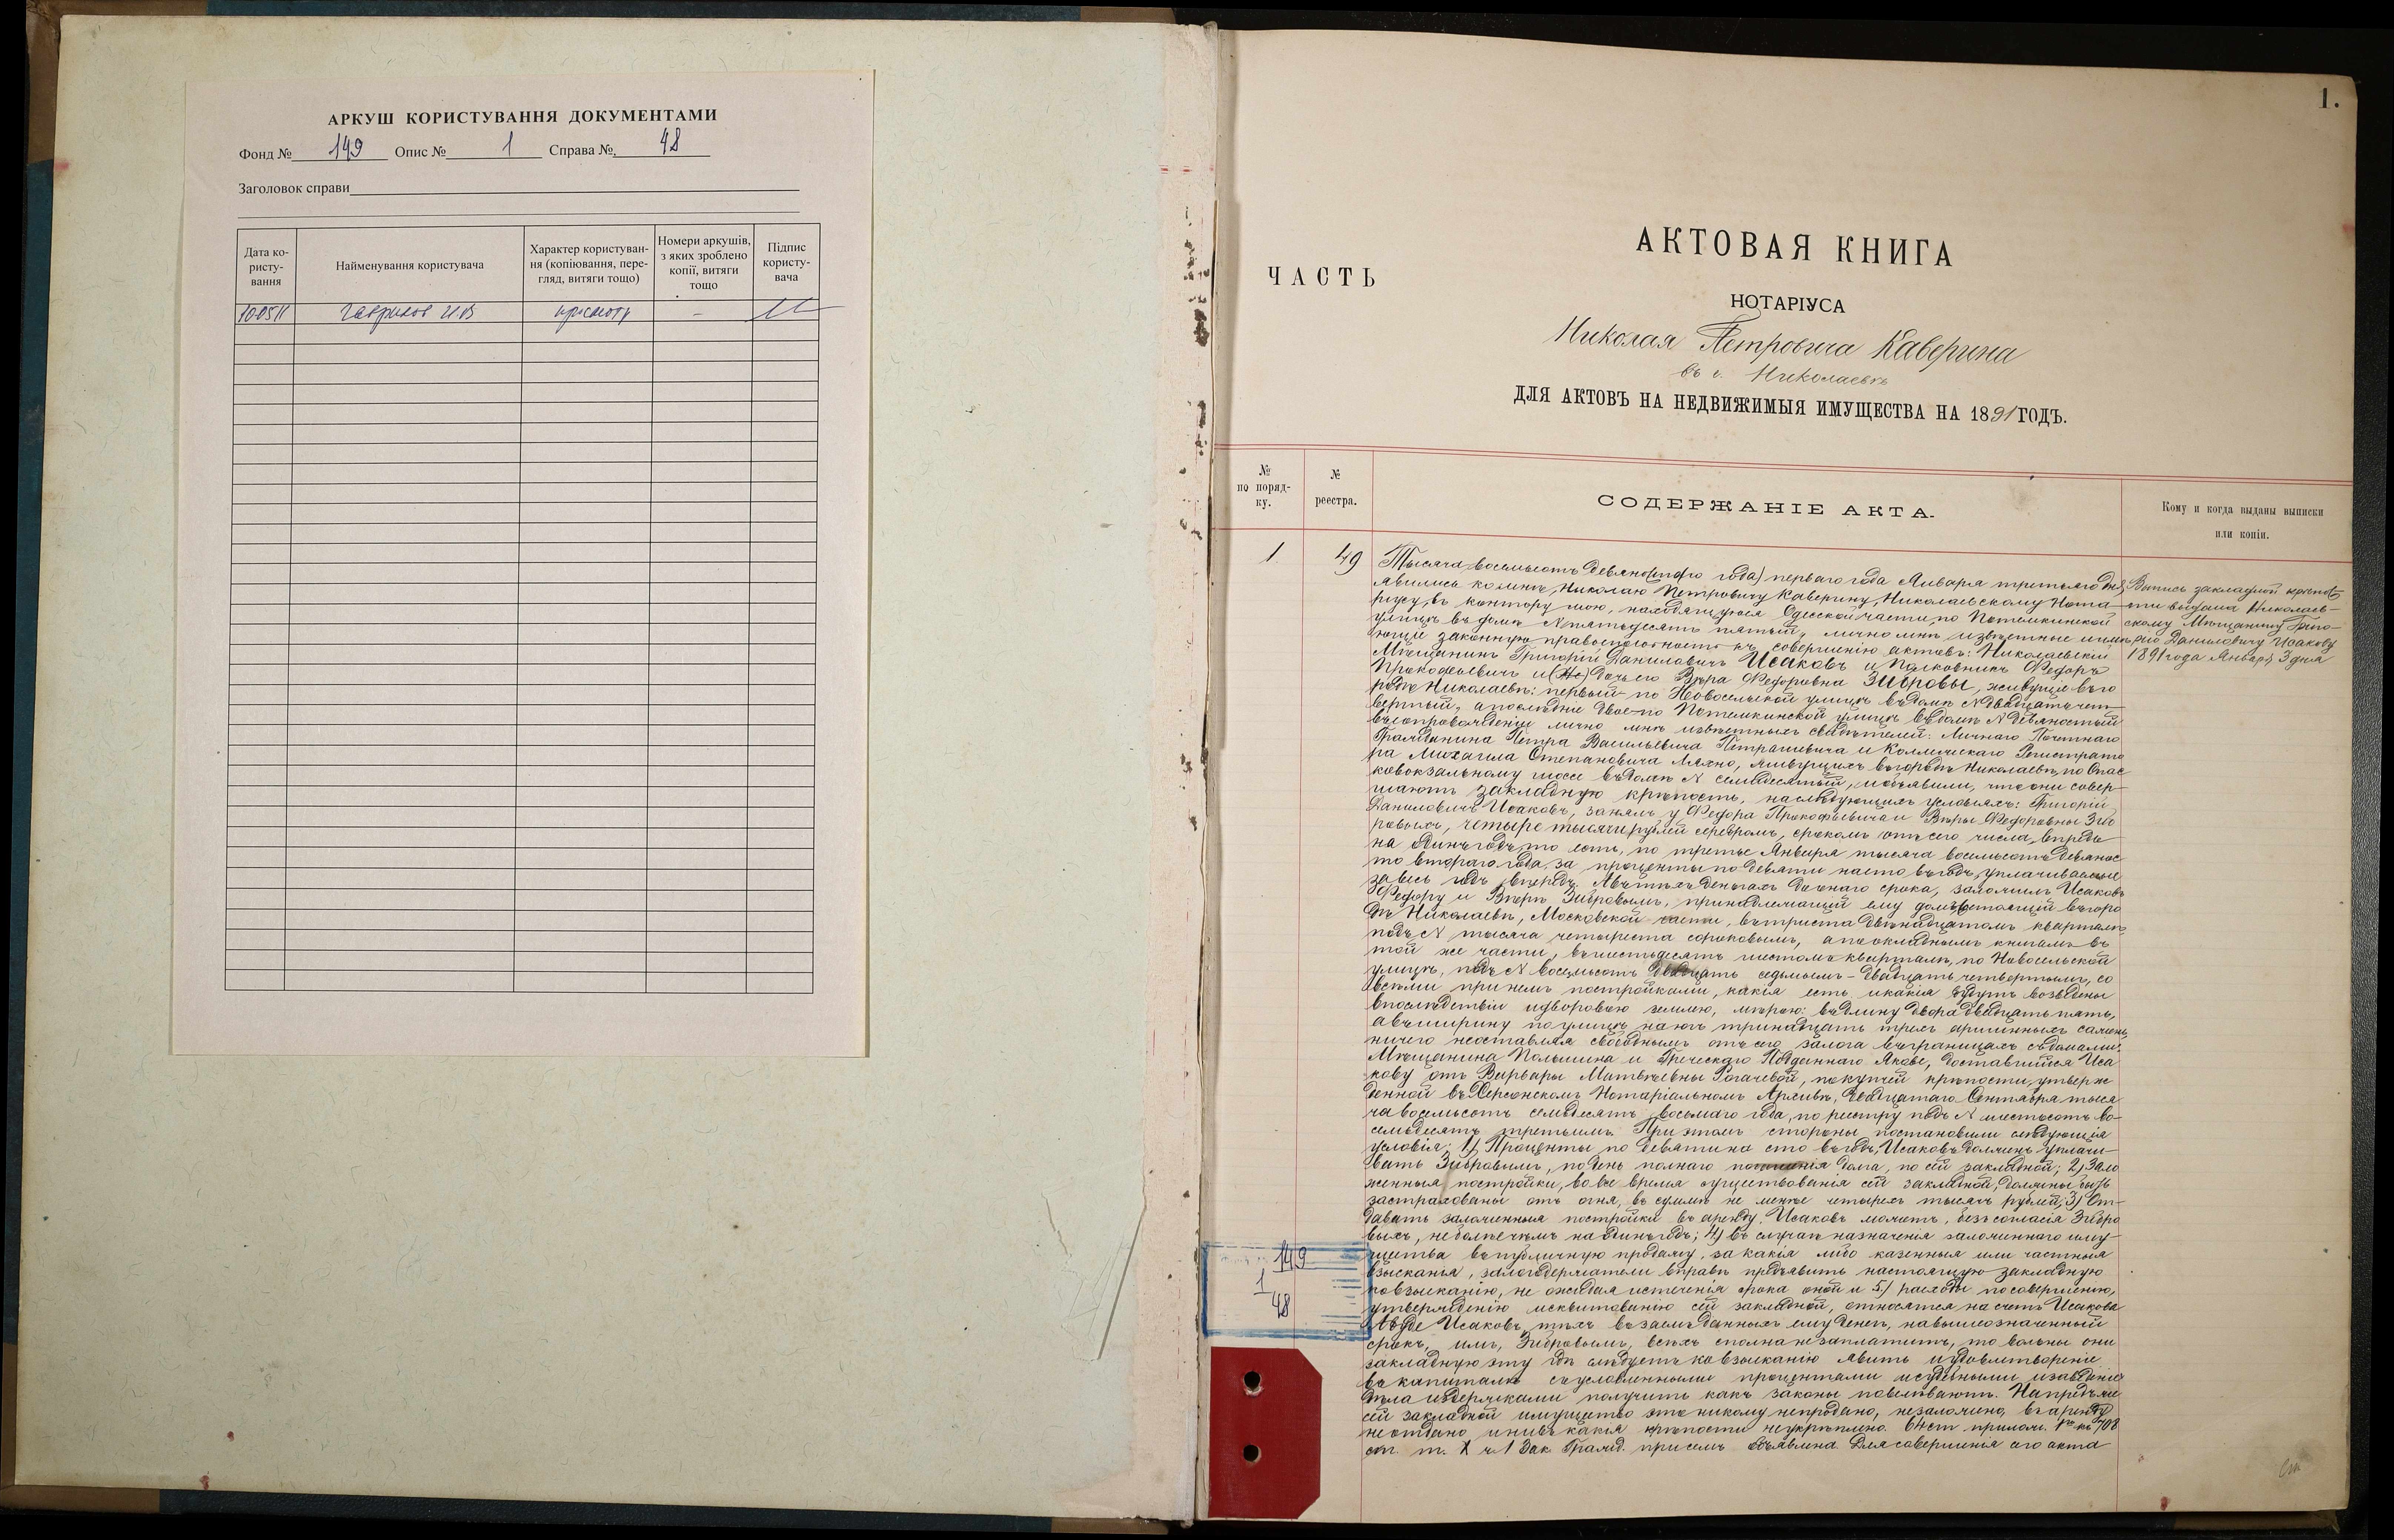 АРКУШ КОРИСТУВАННЯ ДОКУМЕНТАМИ
Фонд № 149 Опис № 1 Справа № 48
Заголовок справи
Дата ко-
ристу-
вання
Найменування користувача
Характер користуван-
ня (копіювання, пере-
гляд, витяги тощо)
Номери аркушів,
з яких зроблено
копії, витяги
тощо
Підпис
користу-
вача
1.
ЧАСТЬ
АКТОВАЯ КНИГА
НОТАРІУСА
Николая Петровича Каверина
въ г. Николаевѣ
ДЛЯ АКТОВЪ НА НЕДВИЖИМЫЯ ИМУЩЕСТВА НА 1891 ГОДЪ.
№
по поряд-
ку.
№
реестра.
СОДЕРЖАНІЕ АКТА.
Кому и когда выданы выписки
или копіи.
1
49
Тысяча восемьсотъ девяносто (года) перваго года Января третьяго дня,
явились ко мнѣ, Николаю Петровичу Каверину, Николаевскому Нота-
ріусу, въ контору мою, находящуюся Одесской части, по Потемкинской
улицѣ въ домѣ № пятьдесятъ пятый, лично мнѣ извѣстные и имѣ-
ющіе законную правоспособность къ совершенію актовъ: Николаевскій
Мѣщанинъ Григорій Даниловичъ Исаковъ и Полковникъ Ѳедоръ
Прокофьевичъ и дочь его Вѣра Ѳедоровна Зибровы, живущіе въ го
родѣ Николаевѣ: первый - по Новосельской улицѣ въ домѣ № двадцать чет-
вертый, а послѣдніе двое - по Потемкинской улицѣ въ домѣ № девяностый
въ сопровожденіи лично мнѣ извѣстныхъ свидѣтелей: Личнаго Почетнаго
Гражданина Петра Васильевича Петрашевича и Коллежскаго Регистрато
ра Михаила Степановича Ляхно, живущихъ въ городѣ Николаевѣ, по Спас
ковокзальному шоссе въ домѣ № семидесятый, и объявили, что они совер-
шаютъ закладную крѣпость, на слѣдующихъ условіяхъ: Григорій
Даниловичъ Исаковъ, занялъ у Ѳедора Прокофьевича и Вѣры Ѳедоровны Зиб
ровыхъ, четыре тысячи рублей серебромъ, срокомъ отъ сего числа впредь
на одинъ годъ, то есть, по третье Января тысяча восемьсотъ девянос
то втораго года, за проценты по девяти на сто въ годъ, уплачиваемые
за весь годъ впередъ. А въ тѣхъ деньгахъ до онаго срока, заложилъ Исаковъ
Ѳедору и Вѣрѣ Зибровымъ, принадлежащій ему домъ, состоящій въ горо
дѣ Николаевѣ, Московской части, въ триста двѣнадцатомъ кварталѣ
подъ № тысяча четыреста сороковымъ, а по окладнымъ книгамъ въ
той же части, въ шестьдесятъ шестомъ кварталѣ, по Новосельской
улицѣ, подъ № восемьсотъ двадцать седьмымъ - двадцать четвертымъ, со
всѣми при немъ постройками, какія есть и какія будутъ возведены
впослѣдствіи и дворовою землею, мѣрою: въ длину двора двадцать пять,
а въ ширину по улицѣ на югъ тринадцать трехъ аршинныхъ сажень
ничего не оставляя свободнымъ отъ сего залога въ границахъ съ домами:
Мѣщанина Полышина и Греческаго Подданнаго Якове, доставшійся Иса
кову отъ Варвары Матвѣевны Рогачевой, по купчей крѣпости, утверж
денной въ Херсонскомъ Нотаріальномъ Архивѣ, двадцатаго Сентября тыся
ча восемьсотъ семьдесятъ восьмаго года, по реестру подъ № шестьсотъ во-
семьдесятъ третьимъ. При этомъ стороны постановили слѣдующія
условія: 1) Проценты по девяти на сто въ годъ, Исаковъ долженъ уплачи-
вать Зибровымъ, по день полнаго погашенія долга, по сей закладной; 2) Зало
женныя постройки, во все время существованія сей закладной, должны быть
застрахованы отъ огня, въ суммѣ не менѣе четырехъ тысячъ рублей; 3) От-
давать заложенныя постройки въ аренду, Исаковъ можетъ, безъ согласія Зибро
выхъ, не болѣе чѣмъ на одинъ годъ; 4) въ случаѣ назначенія заложеннаго иму-
щества въ публичную продажу, за какія либо казенныя или частныя
взысканія, залогодержатели вправѣ предъявить настоящую закладную
ко взысканію, не ожидая истеченія срока оной и 5) расходы по совершенію,
утвержденію и сквитованію сей закладной, относятся на счетъ Исакова
А буде Исаковъ, тѣхъ взаемъ данныхъ ему денегъ, на вышеозначенный
срокъ, имъ, Зибровымъ, всѣхъ сполна не заплатитъ, то вольны они
закладную эту гдѣ слѣдуетъ ко взысканію явить и удовлетвореніе
въ капиталѣ съ условленными процентами и судебными и за веденіе
дѣла издержками получить какъ законы повелѣваютъ. Напредъ же
сей закладной имущество это никому не продано, не заложено, въ аренду
не отдано и ни въ какія крѣпости не укрѣплено. 64 ст. прилож. 1го къ 708
ст. т. X ч. 1 Зак. Гражд. при семъ объявлена. Для совершенія его акта
Выпись закладной крѣпос-
ти выдана Николаев-
скому Мѣщанину Григо-
рію Даниловичу Исакову
1891 года Января 3 дня
149
1
48